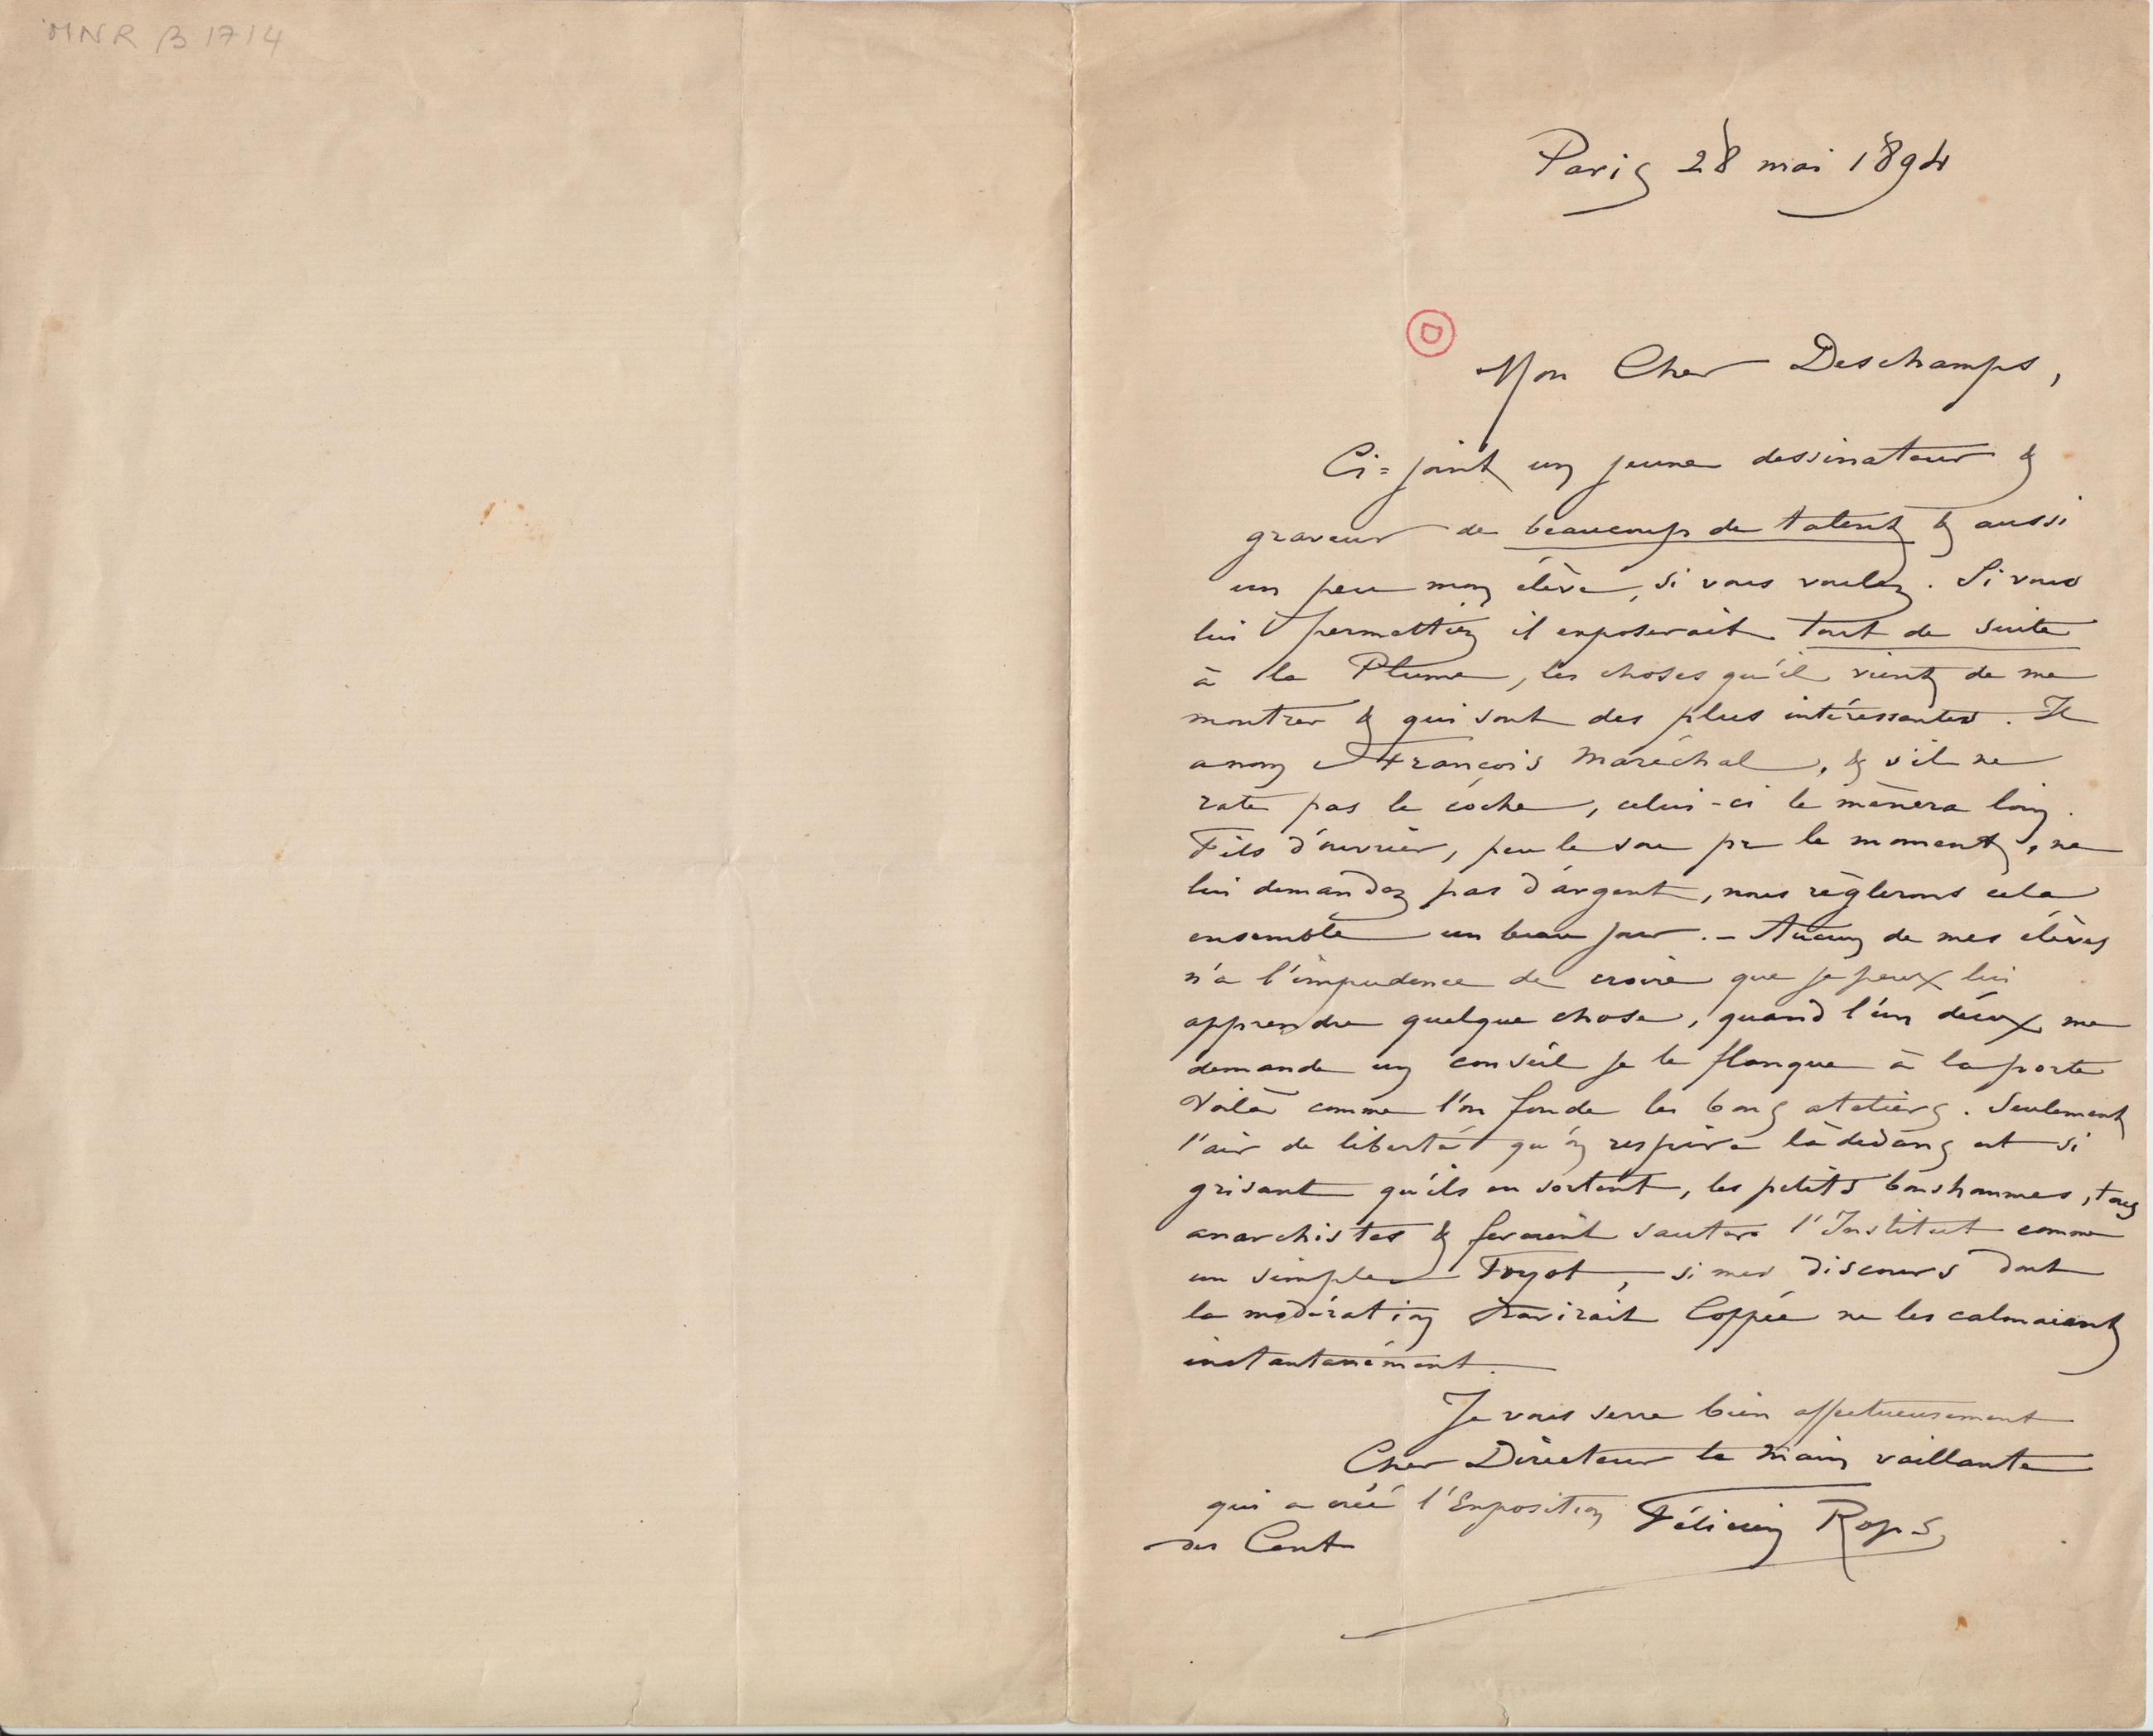 MNR B 1714
Paris 28 mai 1894
Mon Cher Deschamps,
Ci=joint un jeune dessinateur &
graveur de beaucoup de talent & aussi
un peu mon élève, si vous voulez. Si vous
lui permettiez il exposerait tout de suite
à la Plume, les choses qu'il vient de me
montrer & qui sont des plus intéressantes. Il
a nom François Maréchal, & s'il ne
rate pas le coche, celui-ci le mènera loin.
Fils d'ouvrier, peu le sou pr le moment, ne
lui demandez pas d'argent, nous règlerons cela
ensemble un beau jour. – Aucun de mes élèves
n'a l'impudence de croire que je peux lui
apprendre quelque chose, quand l'un d'eux me
demande un conseil je le flanque à la porte
Voilà comme l'on fonde les bons ateliers. Seulement
l'air de liberté qu'on respire là dedans est si
grisant qu'ils en sortent, les petits bonshommes, tous
anarchistes & feraient sauter l'Institut comme
un simple Foyot, si mes discours dont
la modération ravirait Coppée ne les calmaient
instantanément.
Je vous serre bien affectueusement
Cher Directeur la main vaillante
qui a créé l'Exposition
des Cent
Félicien Rops